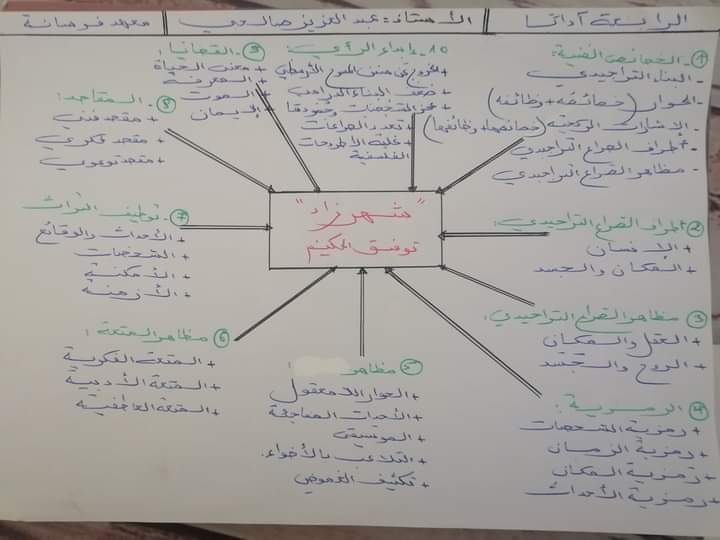 الرابعة آداب
الأستاذ: عبد العزيز صالحي
معهد فوسانة
"شهرزاد"
توفيق الحكيم
① - الخصائص الفنية:
- البناء التراجيدي
- الحوار (خصائصه + وظائفه)
- الإشارات الركحية (خصائصها + وظائفها)
- أطراف الصراع التراجيدي
- مظاهر الصراع التراجيدي
② أطراف الصراع التراجيدي:
+ الإنسان
+ المكان والجسد
③ مظاهر الصراع التراجيدي:
+ العقل والمكان
+ الروح والجسد
④ الرمزية:
+ رمزية الشخصيات
+ رمزية الزمان
+ رمزية المكان
+ رمزية الأحداث
⑤ مظاهر :
+ الحوار اللامعقول
+ الأحداث المفاجئة
+ الموسيقى
+ التلاعب بالأضواء.
+ تكثيف الغموض
⑥ مظاهر المتعة:
+ المتعة الفكرية
+ المتعة الأدبية
+ المتعة العاطفية
⑦ - توظيف التراث
+ الأحداث والوقائع
+ الشخصيات
+ الأمكنة
+ الأزمنة
⑧ - المقاصد:
+ مقصد فني
+ مقصد فكري
+ مقصد توعوي
⑨ - القضايا:
+ معنى الحياة
+ المعرفة
+ الموت
+ الإيمان
10 - إبداء الرأي:
+ الخروج عن المسرح الأرسطي
+ ضعف البناء الدرامي
+ عجز الشخصيات
+ تعدد الصراعات
+ غلبة الأطروحات
الفلسفية